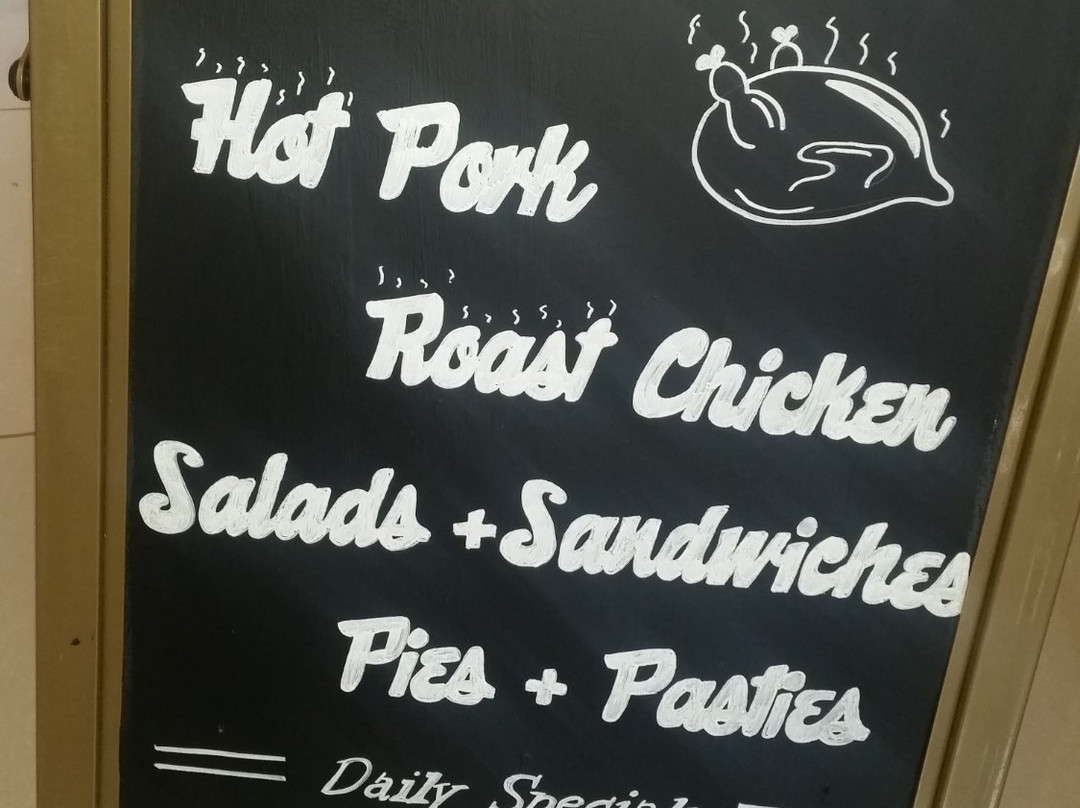 Hot Pork
Roast Chicken
Salads + Sandwiches
Pies + Pasties
Daily